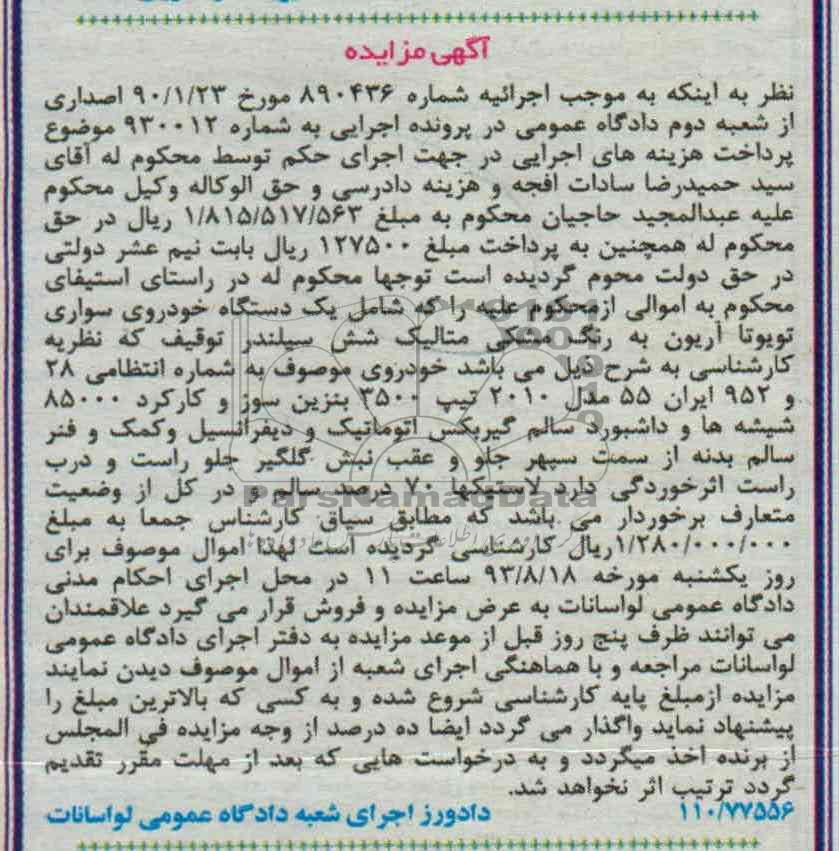 آگهی مزایده
نظر به اینکه به موجب اجرائیه شماره ۸۹۰۴۳۶ مورخ ۹۰/۱/۲۳ اصداری
از شعبه دوم دادگاه عمومی در پرونده اجرایی به شماره ۹۳۰۰۱۲ موضوع
پرداخت هزینه های اجرایی در جهت اجرای حکم توسط محکوم له آقای
سید حمیدرضا سادات افجه و هزینه دادرسی و حق الوکاله وکیل محکوم
علیه عبدالمجید حاجیان محکوم به مبلغ ۱/۸۱۵/۵۱۷/۵۶۳ ریال در حق
محکوم له همچنین به پرداخت مبلغ ۱۲۷۵۰۰ ریال بابت نیم عشر دولتی
در حق دولت محوم گردیده است توجها محکوم له در راستای استیفای
محکوم به اموالی ازمحکوم علیه را که شامل یک دستگاه خودروی سواری
تویوتا آریون به رنگ مشکی متالیک شش سیلندر توقیف که نظریه
کارشناسی به شرح ذیل می باشد خودروی موصوف به شماره انتظامی ۲۸
و ۹۵۲ ایران ۵۵ مدل ۲۰۱۰ تیپ ۳۵۰۰ بنزین سوز و کارکرد ۸۵۰۰۰
شیشه ها و داشبورد سالم گیربکس اتوماتیک و دیفرانسیل وکمک و فنر
سالم بدنه از سمت سپهر جلو و عقب نبش گلگیر جلو راست و درب
راست اثرخوردگی دارد لاستیکها ۷۰ درصد سالم و در کل از وضعیت
متعارف برخوردار می باشد که مطابق سیاق کارشناس جمعا به مبلغ
۱/۲۸۰/۰۰۰/۰۰۰ریال کارشناسی گردیده است لهذا اموال موصوف برای
روز یکشنبه مورخه ۹۳/۸/۱۸ ساعت ۱۱ در محل اجرای احکام مدنی
دادگاه عمومی لواسانات به عرض مزایده و فروش قرار می گیرد علاقمندان
می توانند ظرف پنج روز قبل از موعد مزایده به دفتر اجرای دادگاه عمومی
لواسانات مراجعه و با هماهنگی اجرای شعبه از اموال موصوف دیدن نمایند
مزایده ازمبلغ پایه کارشناسی شروع شده و به کسی که بالاترین مبلغ را
پیشنهاد نماید واگذار می گردد ایضا ده درصد از وجه مزایده فی المجلس
از برنده اخذ میگردد و به درخواست هایی که بعد از مهلت مقرر تقدیم
گردد ترتیب اثر نخواهد شد.
۱۱۰/۷۷۵۵۶ دادورز اجرای شعبه دادگاه عمومی لواسانات
ParsNamadData